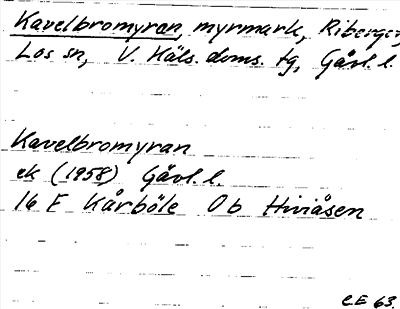 Kavelbromyran, myrmark, Riberget,
Los sn, V. Häls. doms. tg, Gävl. l.
Kavelbromyran
ek (1958) Gävl. l.
16 E Kårböle 0b Hiviåsen
CE 63.